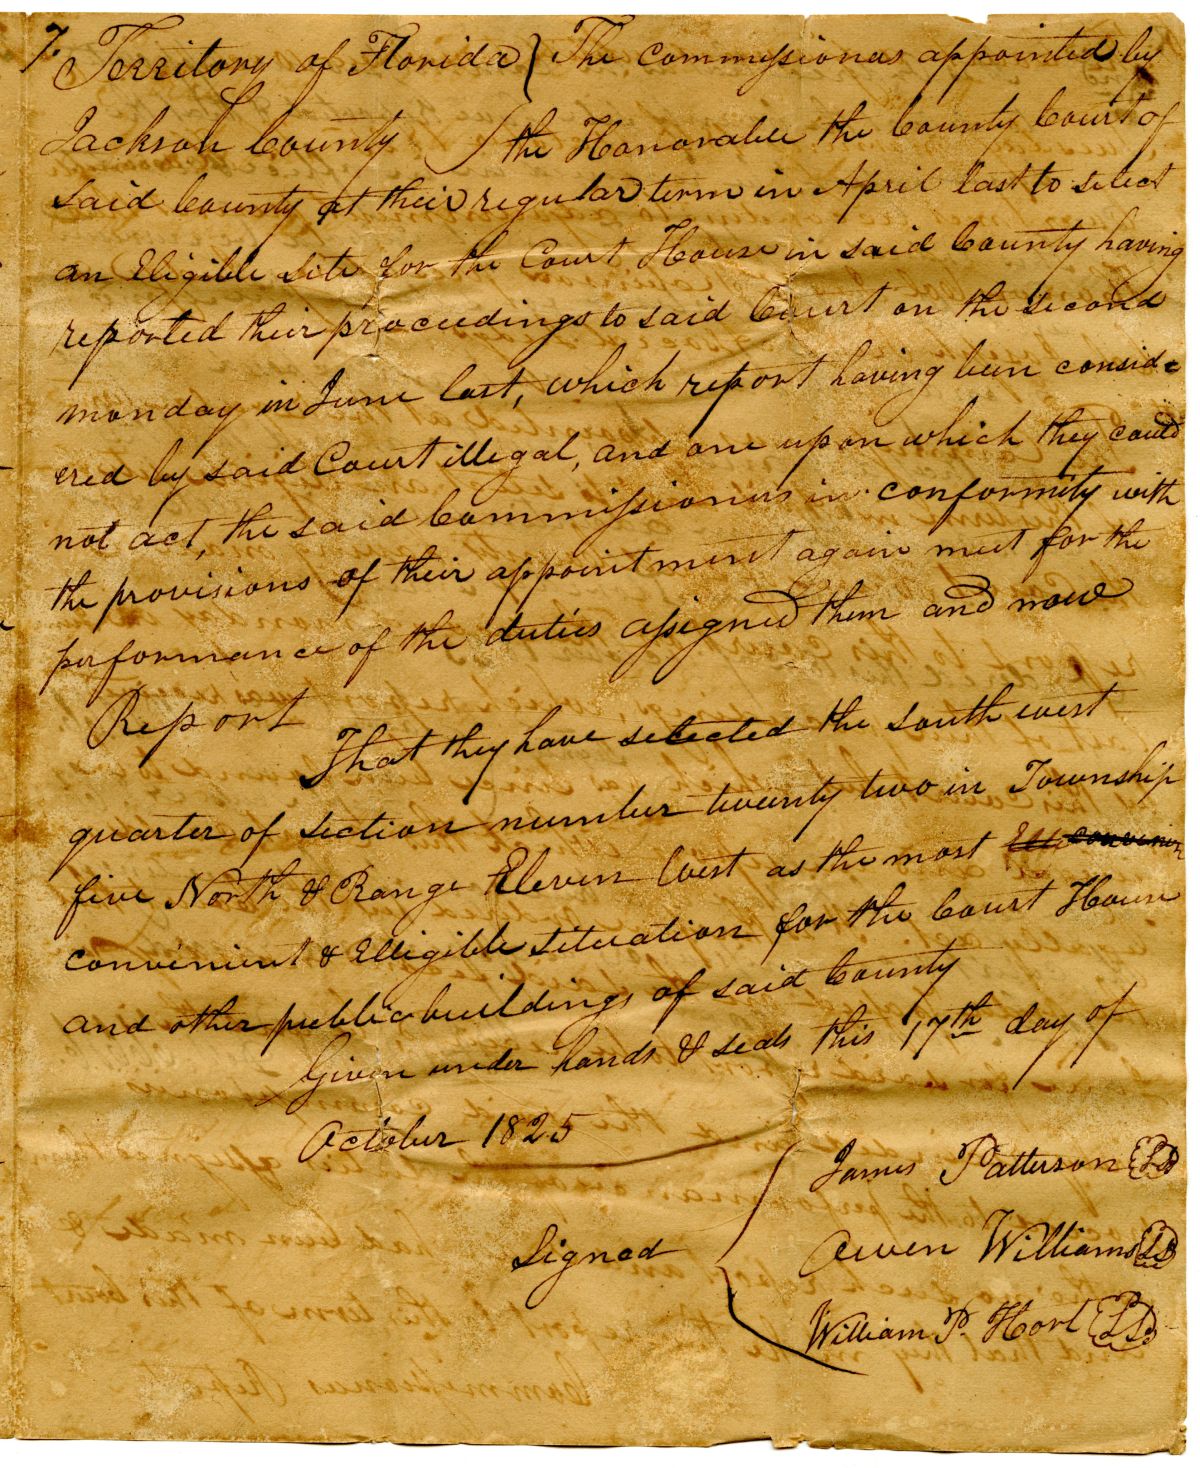 7. Territory of Florida } The commissioners appointed by
Jackson County } the Honorable the County Court of
Said County at their regular term in April last to select
an Eligible Site for the Court House in said County having
reported their proceedings to said Court on the second
monday in June last, which report having been conside
ered by said Court illegal, and one upon which they could
not act, the said Commissioners in conformity with
the provisions of their appointment again meet for the
performance of the duties assigned them and now
Report
That they have selected the south west
quarter of section number twenty two in Township
five North & Range Eleven West as the most convenien
convenient & Elligible situation for the Court House
and other public buildings of said County
Given under hands & seals this 17th day of
October 1825
Signed
James Patterson LS
Owen Williams LS
William P. Hort LS